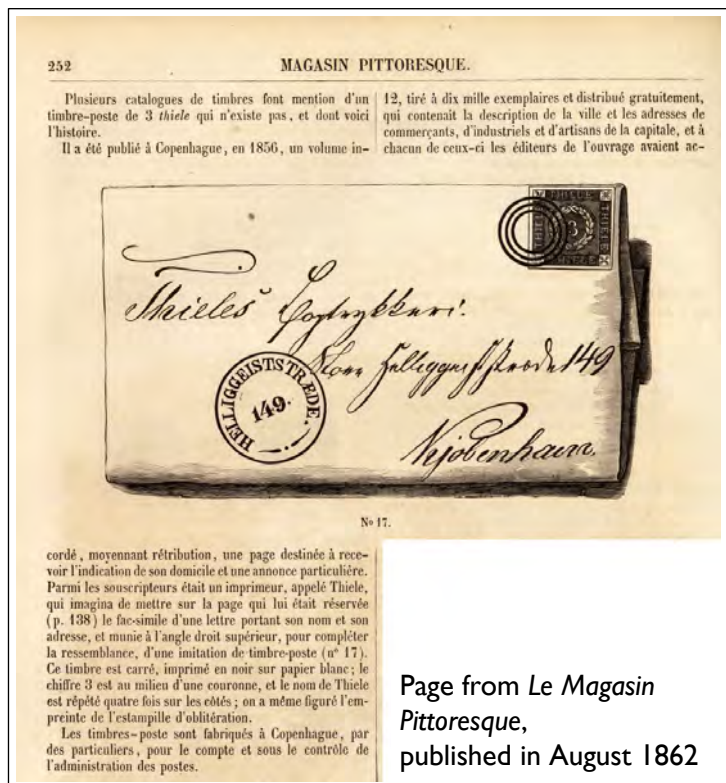 252
MAGASIN PITTORESQUE.
Plusieurs catalogues de timbres font mention d'un
timbre-poste de 3 thiele qui n'existe pas, et dont voici
l'histoire.
Il a été publié à Copenhague, en 1856, un volume in-
12, tiré à dix mille exemplaires et distribué gratuitement,
qui contenait la description de la ville et les adresses de
commerçants, d'industriels et d'artisans de la capitale, et à
chacun de ceux-ci les éditeurs de l'ouvrage avaient ac-
THIELE
THIELE
3
THIELE
THIELE
Thieles Bogtrykkeri.
Store Helliggeiststræde 149
Kjöbenhavn.
HELLIGGEISTSTRÆDE.
149.
No 17.
cordé, moyennant rétribution, une page destinée à rece-
voir l'indication de son domicile et une annonce particulière.
Parmi les souscripteurs était un imprimeur, appelé Thiele,
qui imagina de mettre sur la page qui lui était réservée
(p. 138) le fac-simile d'une lettre portant son nom et son
adresse, et munie à l'angle droit supérieur, pour compléter
la ressemblance, d'une imitation de timbre-poste (nº 17).
Ce timbre est carré, imprimé en noir sur papier blanc; le
chiffre 3 est au milieu d'une couronne, et le nom de Thiele
est répété quatre fois sur les côtés; on a même figuré l'em-
preinte de l'estampille d'oblitération.
Les timbres-poste sont fabriqués à Copenhague, par
des particuliers, pour le compte et sous le contrôle de
l'administration des postes.
Page from Le Magasin
Pittoresque,
published in August 1862